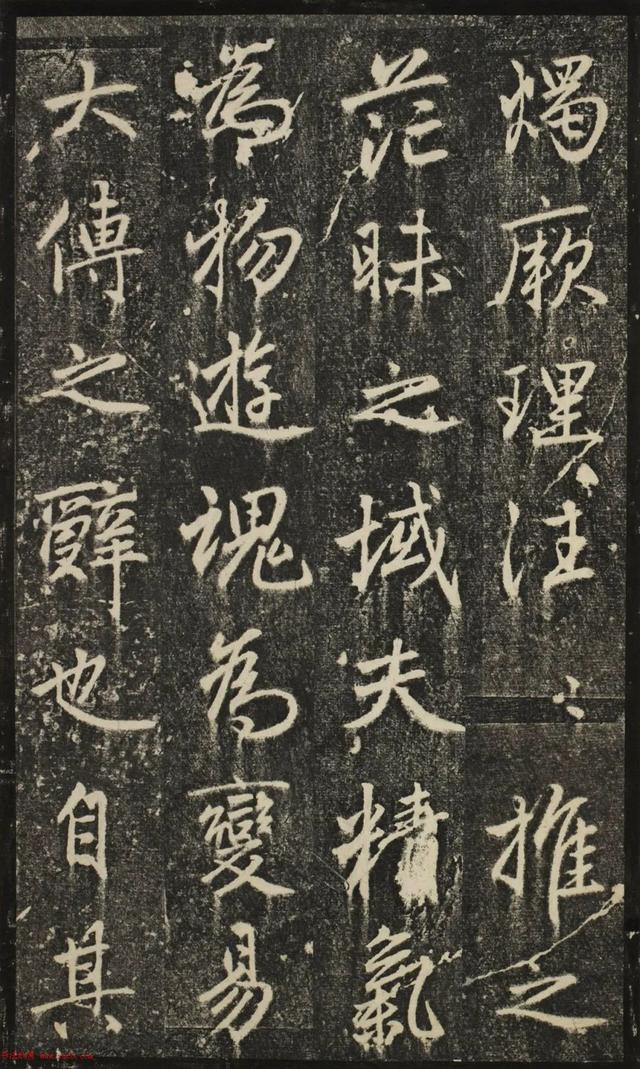 燭厥理往〻推之
茫昧之域夫精氣
為物遊魂為變易
大傳之辭也自其